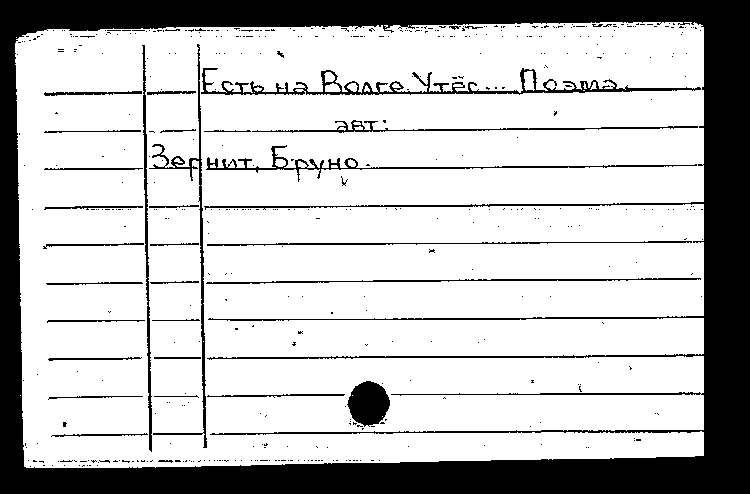 Есть на Волге Утёс... Поэма.
авт:
Зернит, Бруно.